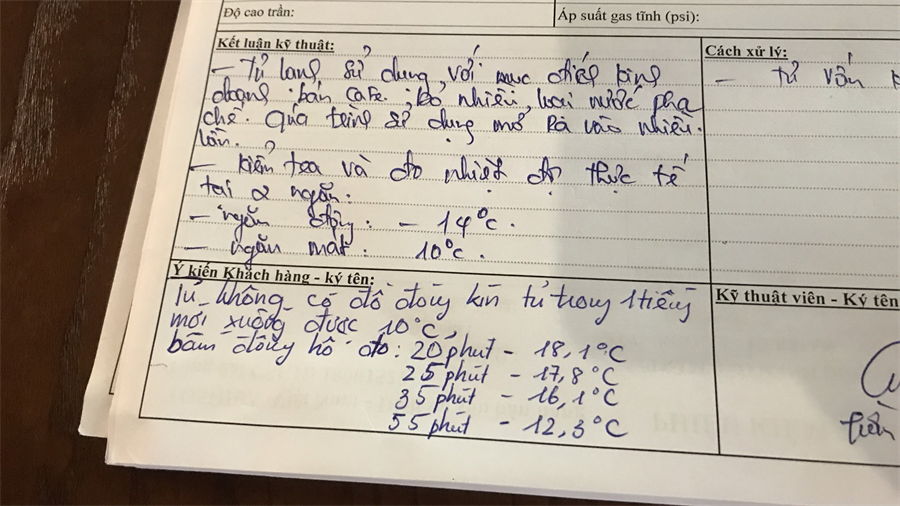 Độ cao trần:
Áp suất gas tĩnh (psi):
Kết luận kỹ thuật:
Cách xử lý:
- Tủ lạnh sử dụng với mục đích kinh
doanh: bán cafe, bỏ nhiều loại nước pha
chế. Quá trình sử dụng mở ra vào nhiều
lần.
- Kiểm tra và đo nhiệt độ thực tế
tại 2 ngăn:
- ngăn đông: - 14°c.
- ngăn mát: 10°c.
- Tư vấn
Ý kiến Khách hàng - ký tên:
Kỹ thuật viên - Ký tên
Tủ không có đồ đóng kín tủ trong 1 tiếng
mới xuống được 10°C,
bấm đồng hồ đo: 20 phút - 18,1°C
25 phút - 17,8°C
35 phút - 16,1°C
55 phút - 12,3°C